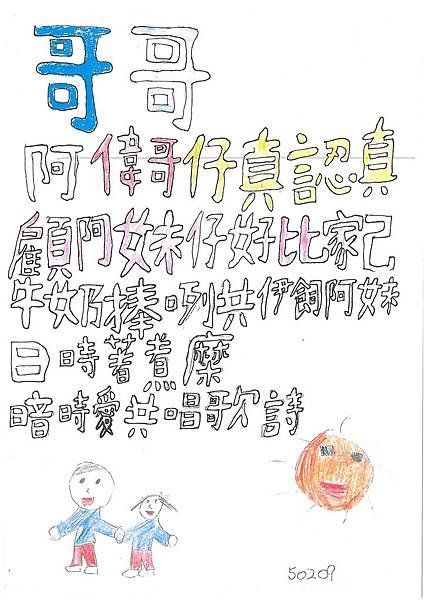 哥哥
阿偉哥仔真認真
顧阿妹仔好比家己
牛奶捧咧共伊飼阿妹
日時著煮糜
暗時愛共唱歌詩
50209